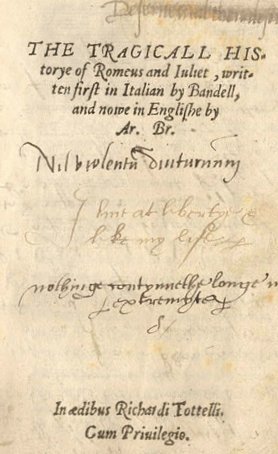 THE TRAGICALL HIS-
torye of Romeus and Iuliet, writ-
ten first in Italian by Bandell,
and nowe in Englishe by
Ar. Br.
Nil violentũ diuturnum
I hint at liberty
like my life
nothinge contynuethe longe in
extremyte
In ædibus Richardi Tottelli.
Cum Priuilegio.